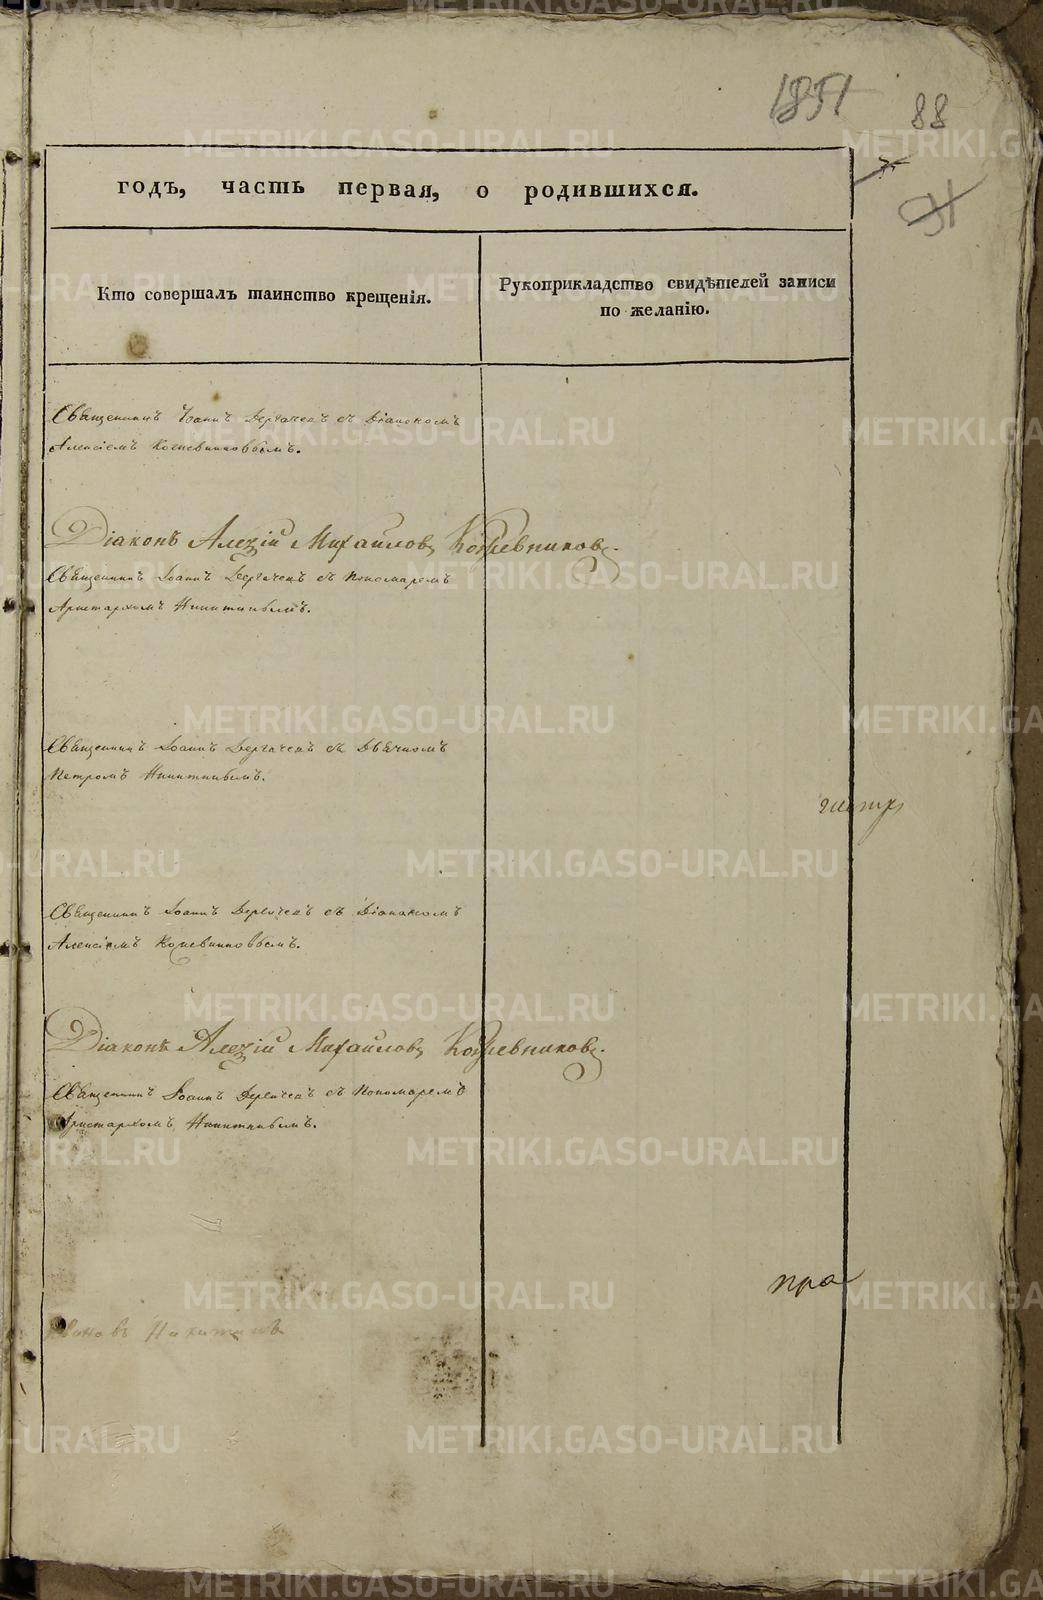 1851
88
годъ, часть первая, о родившихся.
31
Кто совершалъ таинство крещенія.
Рукоприкладство свидѣтелей записи
по желанію.
Священникъ Іоаннъ Дергачевъ съ Діакономъ
Алексіемъ Кожевниковымъ.
Діаконъ Алеѯій Михайловъ Кожевниковъ.
Священникъ Іоаннъ Дергачевъ съ Пономаремъ
Аристархомъ Никитинымъ.
Священникъ Іоаннъ Дергачевъ съ Дьячкомъ
Петромъ Никитинымъ.
Священникъ Іоаннъ Дергачевъ съ Діакономъ
Алексіемъ Кожевниковымъ.
Діаконъ Алеѯій Михайловъ Кожевниковъ.
Священникъ Іоаннъ Дергачевъ съ Пономаремъ
Аристархомъ Никитинымъ.
пра
Никитинъ
METRIKI.GASO-URAL.RU